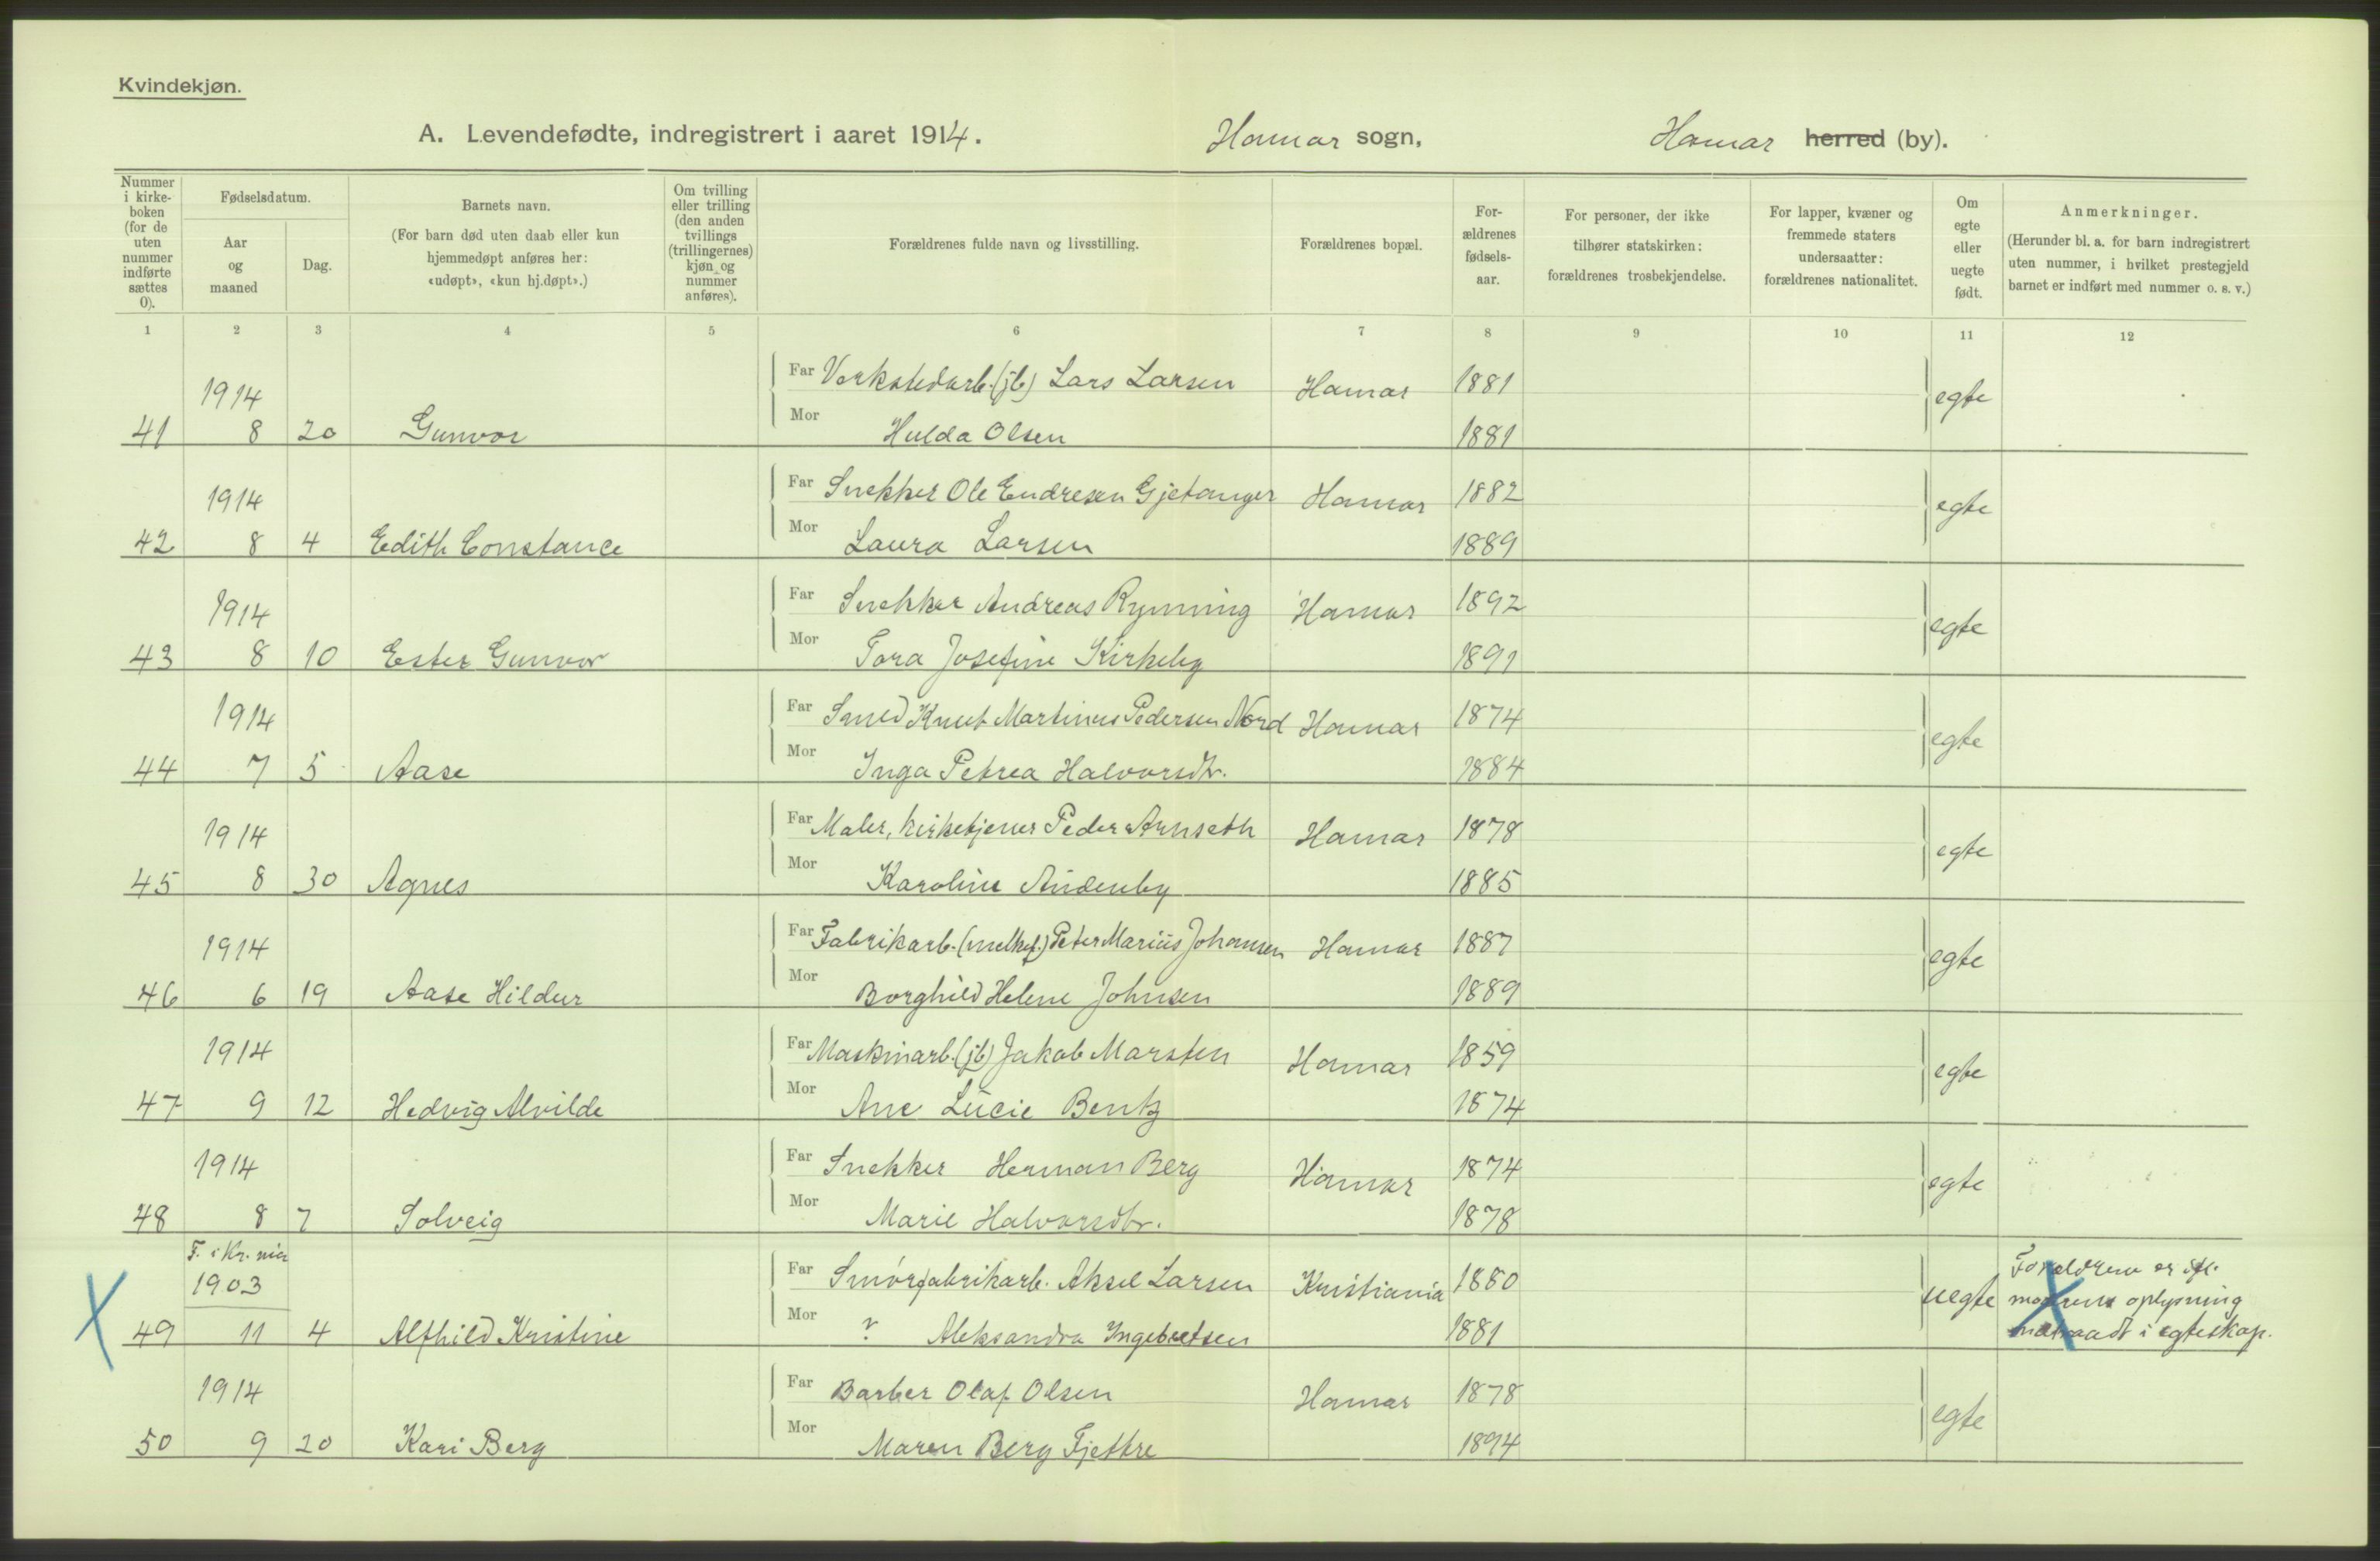 Kvindekjøn.
A. Levendefødte, indregistrert i aaret 1914. Hamar sogn, Hamar herred (by).
Nummer i kirkeboken (for de uten nummer indførte sættes 0).
Fødselsdatum.
Aar og maaned
Dag.
Barnets navn.
(For barn død uten daab eller kun hjemmedøpt anføres her: «udøpt», «kun hj.døpt».)
Om tvilling eller trilling (den anden tvillings (trillingernes) kjøn og nummer anføres).
Forældrenes fulde navn og livsstilling.
Forældrenes bopæl.
Forældrenes fødselsaar.
For personer, der ikke tilhører statskirken: forældrenes trosbekjendelse.
For lapper, kvæner og fremmede staters undersaatter: forældrenes nationalitet.
Om egte eller uegte født.
Anmerkninger.
(Herunder bl. a. for barn indregistrert uten nummer, i hvilket prestegjeld barnet er indført med nummer o. s. v.)
1 2 3 4 5 6 7 8 9 10 11 12
1914 Far Verkstedarb. (jb) Lars Larsen Hamar 1881 egte
41 8 20 Gunvor Mor Hulda Olsen 1881
1914 Far Snekker Ole Endresen Gjetanger Hamar 1882 egte
42 8 4 Edith Constance Mor Laura Larsen 1889
1914 Far Snekker Andreas Rynning Hamar 1892 egte
43 8 10 Ester Gunvor Mor Tora Josefine Kirkeby 1891
1914 Far Smed Knut Martinus Pedersen Nord Hamar 1874 egte
44 7 5 Aase Mor Inga Petrea Halvorsdtr. 1884
1914 Far Maler, kirketjener Peder Arnseth Hamar 1878 egte
45 8 30 Agnes Mor Karoline Andenby 1885
1914 Far Fabrikarb. (melkef.) Peter Marius Johansen Hamar 1887 egte
46 6 19 Aase Hildur Mor Borghild Helene Johnsen 1889
1914 Far Maskinarb. (jb) Jakob Marsten Hamar 1859 egte
47 9 12 Hedvig Alvilde Mor Ane Lucie Bentz 1874
1914 Far Snekker Herman Berg Hamar 1874 egte
48 8 7 Solveig Mor Marie Halvorsdtr. 1878
F. i Kr.nia
1903 Far Smørfabrikarb. Aksel Larsen Kristiania 1880 uegte Forældrene er ifl.
morens oplysning
49 11 4 Alfhild Kristine Mor ? Aleksandra Ingebretsen 1881 indtraadt i egteskap.
1914 Far Barber Olaf Olsen Hamar 1878 egte
50 9 20 Kari Berg Mor Maren Berg Fjettre 1894